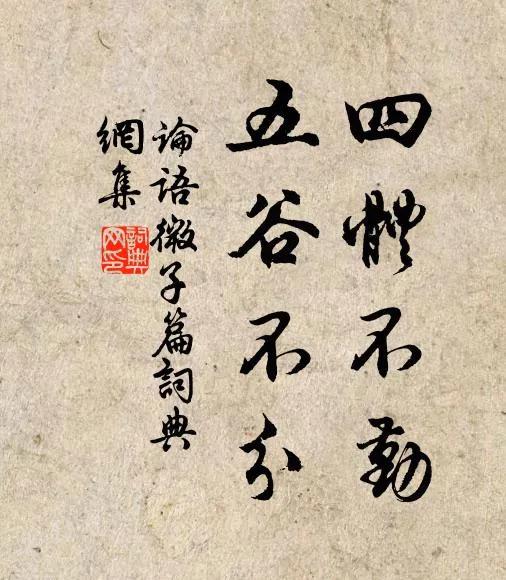 四體不勤
五谷不分
論語微子篇詞典
網集
詞典
网印